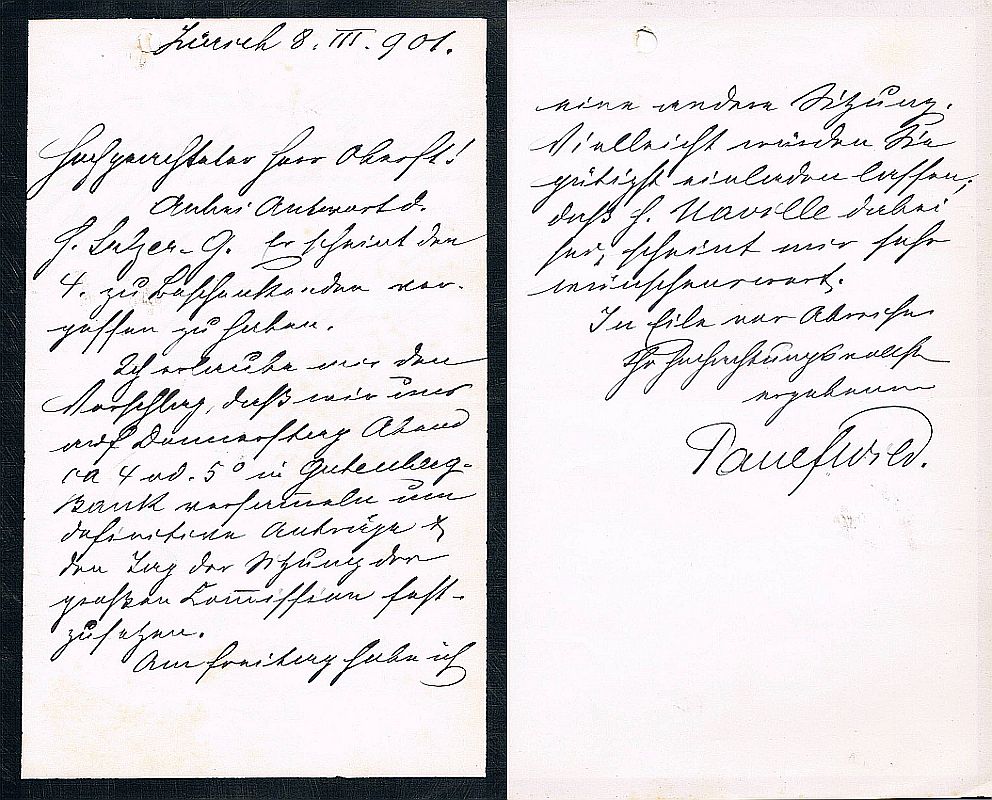 Zürich 8. III. 901.
Hochgeachteter Herr Oberst!
Anbei Antwort d.
H. Sulzer-G. Er scheint den
4. zu Beschenkenden ver-
gessen zu haben.
Ich erlaube mir den
Vorschlag, daß wir uns
auf Donnerstag Abend
ca 4 od. 5° in Gutenberg-
bank versammeln um
definitive Anträge &
den Tag der Sitzung der
großen Commission fest-
zusetzen.
Am Freitag habe ich
eine andere Sitzung.
Vielleicht würden Sie
gütigst einladen lassen;
daß H. Naville dabei
sei, scheint mir sehr
wünschenswert.
In Eile vor Abreise
Ihr hochachtungsvollst
ergebener
Paul F Wild.